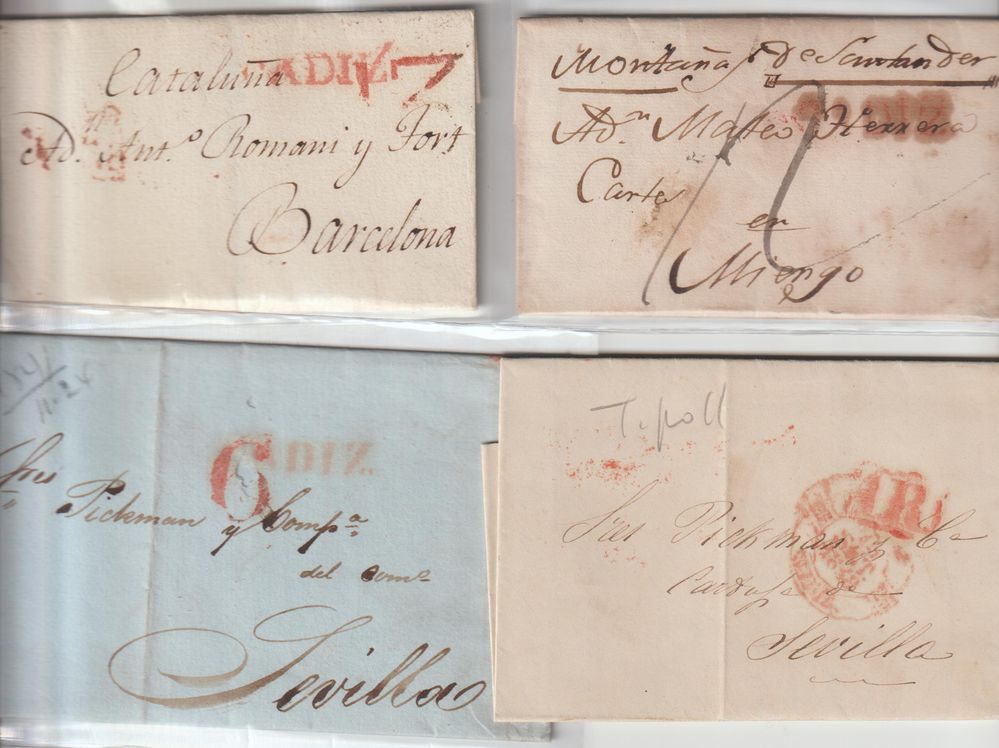 Cataluña
CADIZ
7
A D. Ant.º Romani y Fort
Barcelona
Montañas De Santander
CADIZ
A Dn Mateo Herrera
Cartes
en
Miengo
6
CADIZ
Sres
Pickman y Compª
del comº
Sevilla
T. poll
1R
Sres Pickman y Cª
Cartuja de
Sevilla